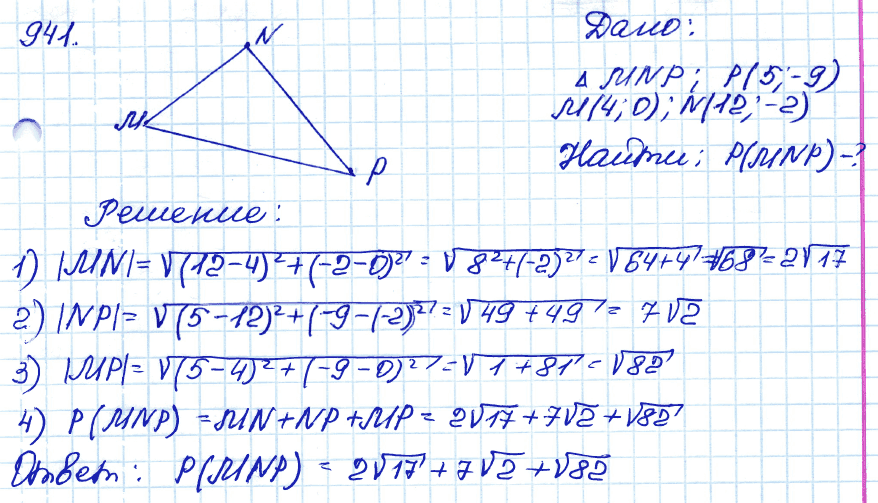 941.
N
M
P
Дано:
△ MNP; P(5;-9)
M(4;0); N(12;-2)
Найти: P(MNP)-?
Решение:
1) |MN|=√((12-4)²+(-2-0)²) = √(8²+(-2)²) = √(64+4) = √68 = 2√17
2) |NP|= √((5-12)²+(-9-(-2))²) = √(49+49) = 7√2
3) |MP|= √((5-4)²+(-9-0)²) = √(1+81) = √82
4) P(MNP) = MN+NP+MP= 2√17+7√2+√82
Ответ: P(MNP) = 2√17+7√2+√82